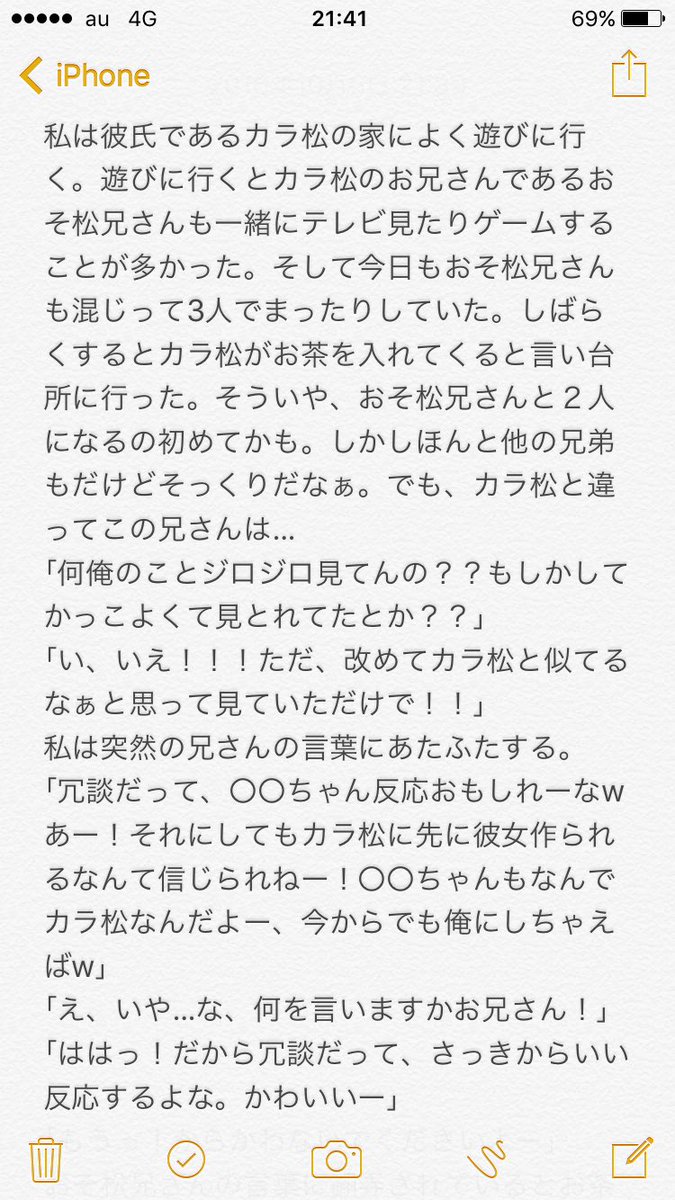 au 4G 21:41 69%
iPhone
私は彼氏であるカラ松の家によく遊びに行
く。遊びに行くとカラ松のお兄さんであるお
そ松兄さんも一緒にテレビ見たりゲームする
ことが多かった。そして今日もおそ松兄さん
も混じって3人でまったりしていた。しばら
くするとカラ松がお茶を入れてくると言い台
所に行った。そういや、おそ松兄さんと２人
になるの初めてかも。しかしほんと他の兄弟
もだけどそっくりだなぁ。でも、カラ松と違
ってこの兄さんは...
「何俺のことジロジロ見てんの？？もしかして
かっこよくて見とれてたとか？？」
「い、いえ！！！ただ、改めてカラ松と似てる
なぁと思って見ていただけで！！」
私は突然の兄さんの言葉にあたふたする。
「冗談だって、〇〇ちゃん反応おもしれーなw
あー！それにしてもカラ松に先に彼女作られ
るなんて信じられねー！〇〇ちゃんもなんで
カラ松なんだよー、今からでも俺にしちゃえ
ばw」
「え、いや...な、何を言いますかお兄さん！」
「ははっ！だから冗談だって、さっきからいい
反応するよな。かわいいー」